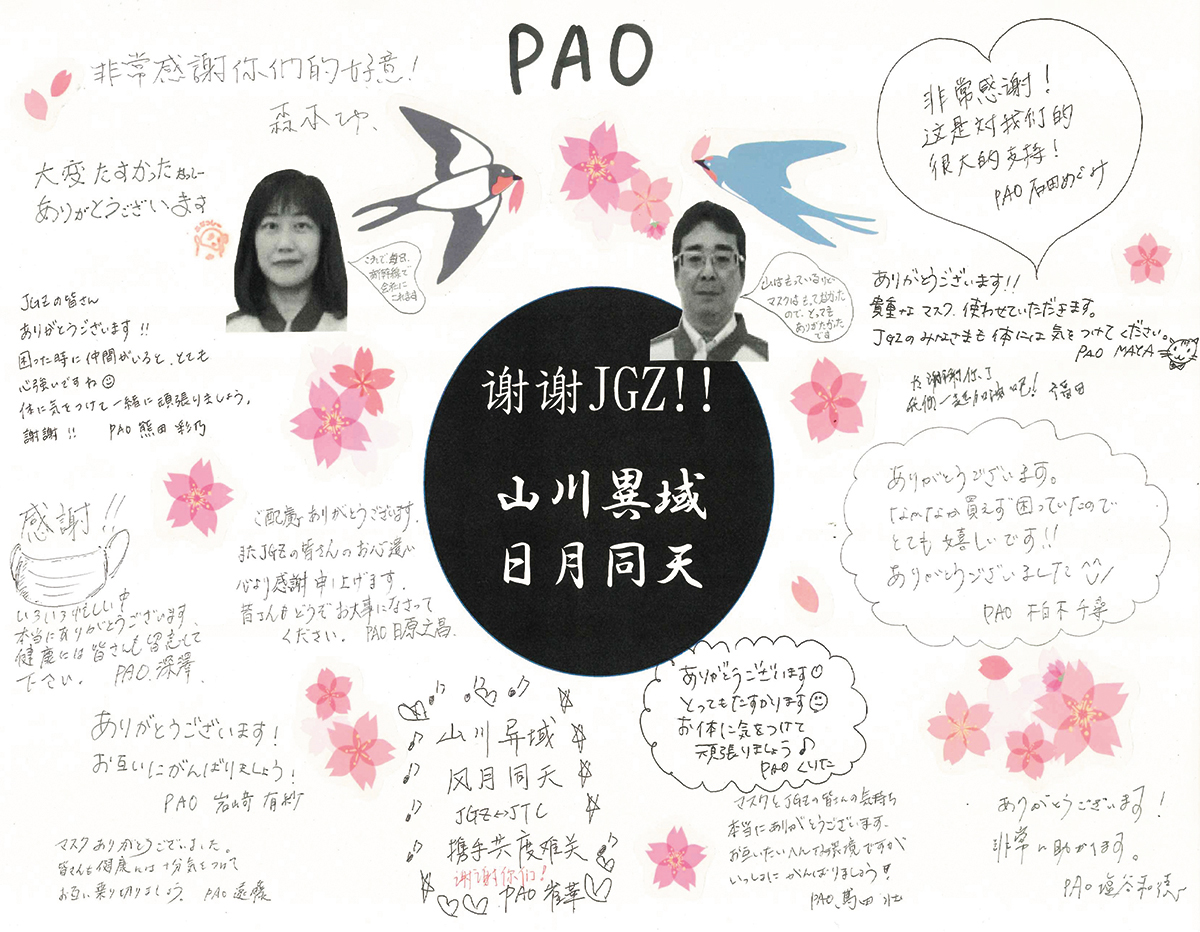 PAO
非常感謝你們的好意!
森本
大変たすかった
ありがとうございます
これで毎日、
新幹線で
会社に
これます
山はもっているけど
マスクはもってなかった
ので、とっても
ありがたかった
です
非常感谢!
这是对我们的
很大的支持!
PAO 石田めぐみ
JGZの皆さん
ありがとうございます!!
困った時に仲間がいると、とても
心強いですね
体に気をつけて一緒に頑張りましょう。
謝謝!! PAO 熊田 彩乃
ありがとうございます!!
貴重なマスク、使わせていただきます。
JGZのみなさまも体には気をつけてください。
PAO MAYA
谢谢JGZ!!
山川異域
日月同天
感謝!!
いろいろ忙しい中
本当にありがとうございます。
健康には皆さんも留意して
下さい。 PAO.深澤.
ご配慮ありがとうございます.
またJGZの皆さんのお心遣い
心より感謝申し上げます.
皆さんもどうぞお大事になさって
ください. PAO 日原文昌.
ありがとうございます。
なかなか買えず困っていたので
とても嬉しいです!!
ありがとうございました
PAO 柏木 千尋
ありがとうございます
とってもたすかります
お体に気をつけて
頑張りましょう♪
PAO くりた
ありがとうございます!
お互いにがんばりましょう!
PAO 岩崎 有紗
山川异域
风月同天
JGZ↔JTC
携手共度难关
谢谢你们!
PAO 崔華
マスクありがとうございました。
皆さんも健康には十分気をつけて
お互い乗り切りましょう. PAO 遠藤
マスクとJGZの皆さんの気持ち
本当にありがとうございます.
お互いたいへんな環境ですが
いっしょにがんばりましょう!
PAO.
ありがとうございます!
非常に助かります。
PAO 塩谷和徳